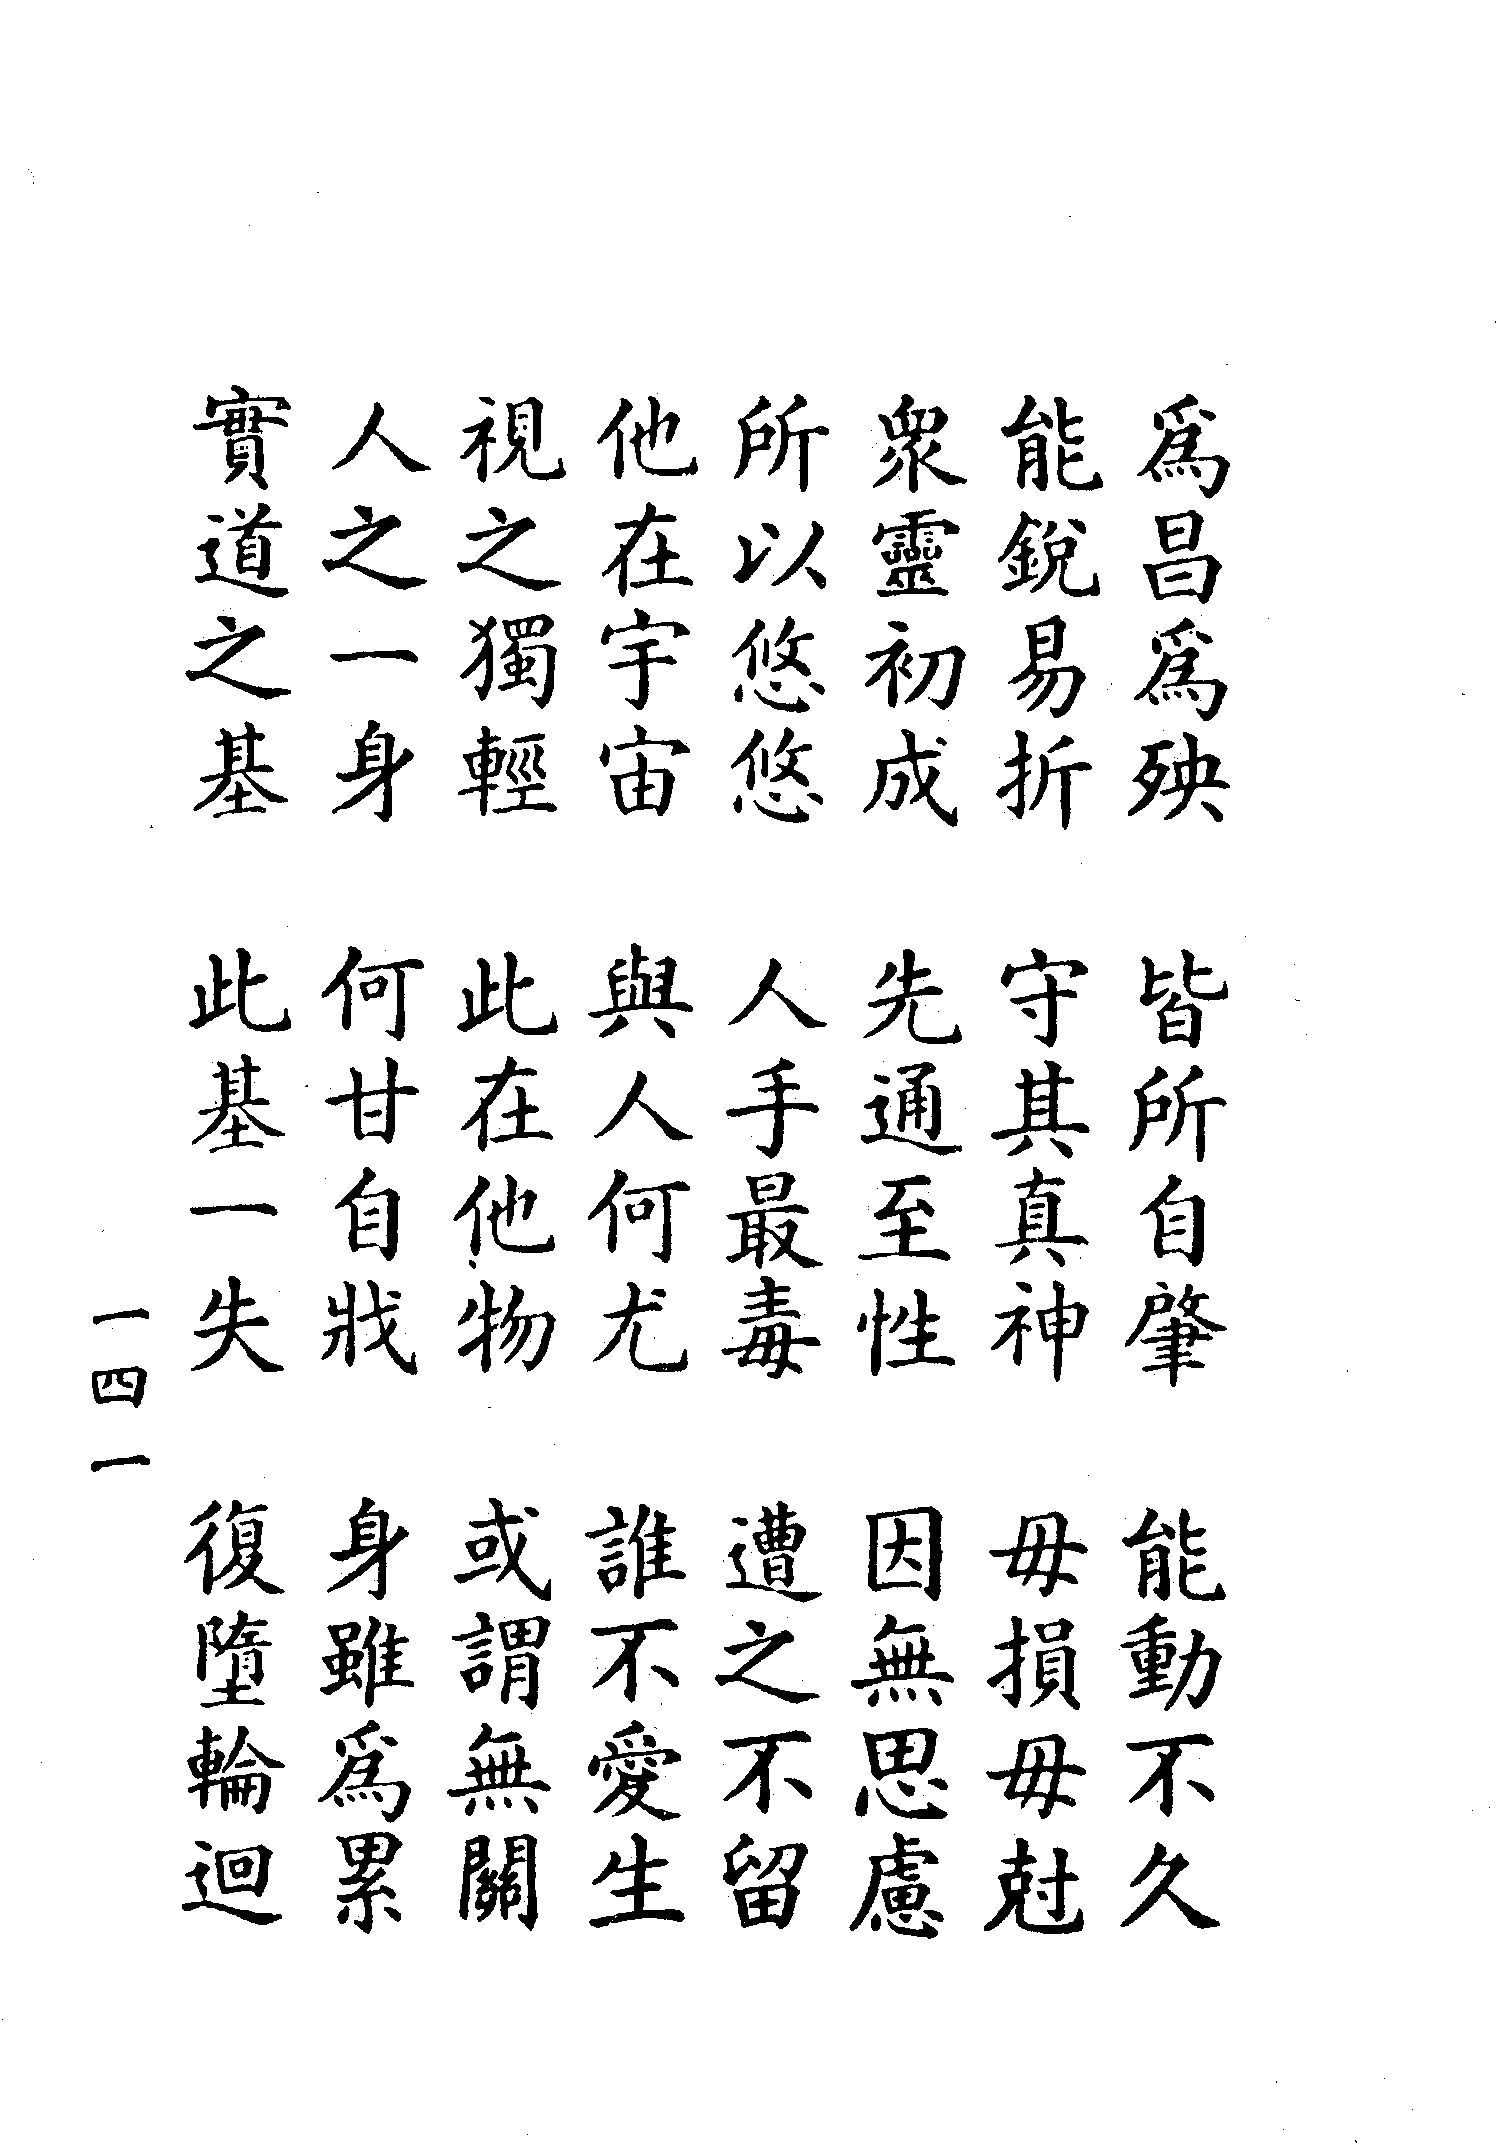 爲昌爲殃　皆所自肇　能動不久
能銳易折　守其真神　毋損毋尅
衆靈初成　先通至性　因無思慮
所以悠悠　人手最毒　遭之不留
他在宇宙　與人何尤　誰不愛生
視之獨輕　此在他物　或謂無關
人之一身　何甘自戕　身雖爲累
實道之基　此基一失　復墮輪迴
一四一